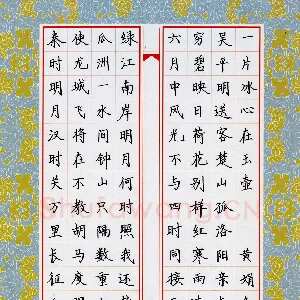 一片冰心在玉壶 黄
吴平明送客楚山孤洛阳亲
穷碧映日荷花别样红寒雨
六月中风光不与四时同接
绿江南岸明月何时照我还
瓜洲一水间钟山只隔数重
使龙城飞将在不教胡马度
秦时明月汉时关里长征